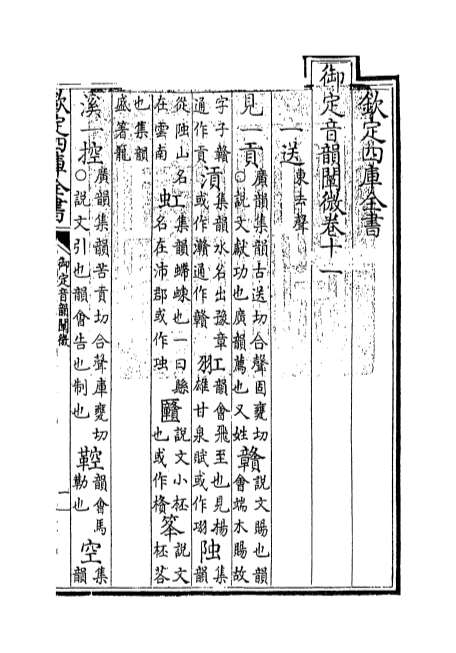 欽定四庫全書
御定音韻闡微卷十一
一送東去聲
見一貢廣韻集韻古送切合聲固甕切○說文獻功也廣韻薦也又姓贛說文賜也韻會端木賜故
字子贛通作貢集韻水名出豫章或作灨通作贛羾韻會飛至也見楊雄甘泉賦或作集韻
山名在雲南虹集韻螮蝀也一曰縣名在沛郡或作𠥎說文小桮也或作說文桮笿
也集韻盛箸籠
溪一控廣韻集韻苦貢切合聲庫甕切○說文引也韻會告也制也鞚韻會馬勒也空集韻
欽定四庫全書
御定音韻闡微